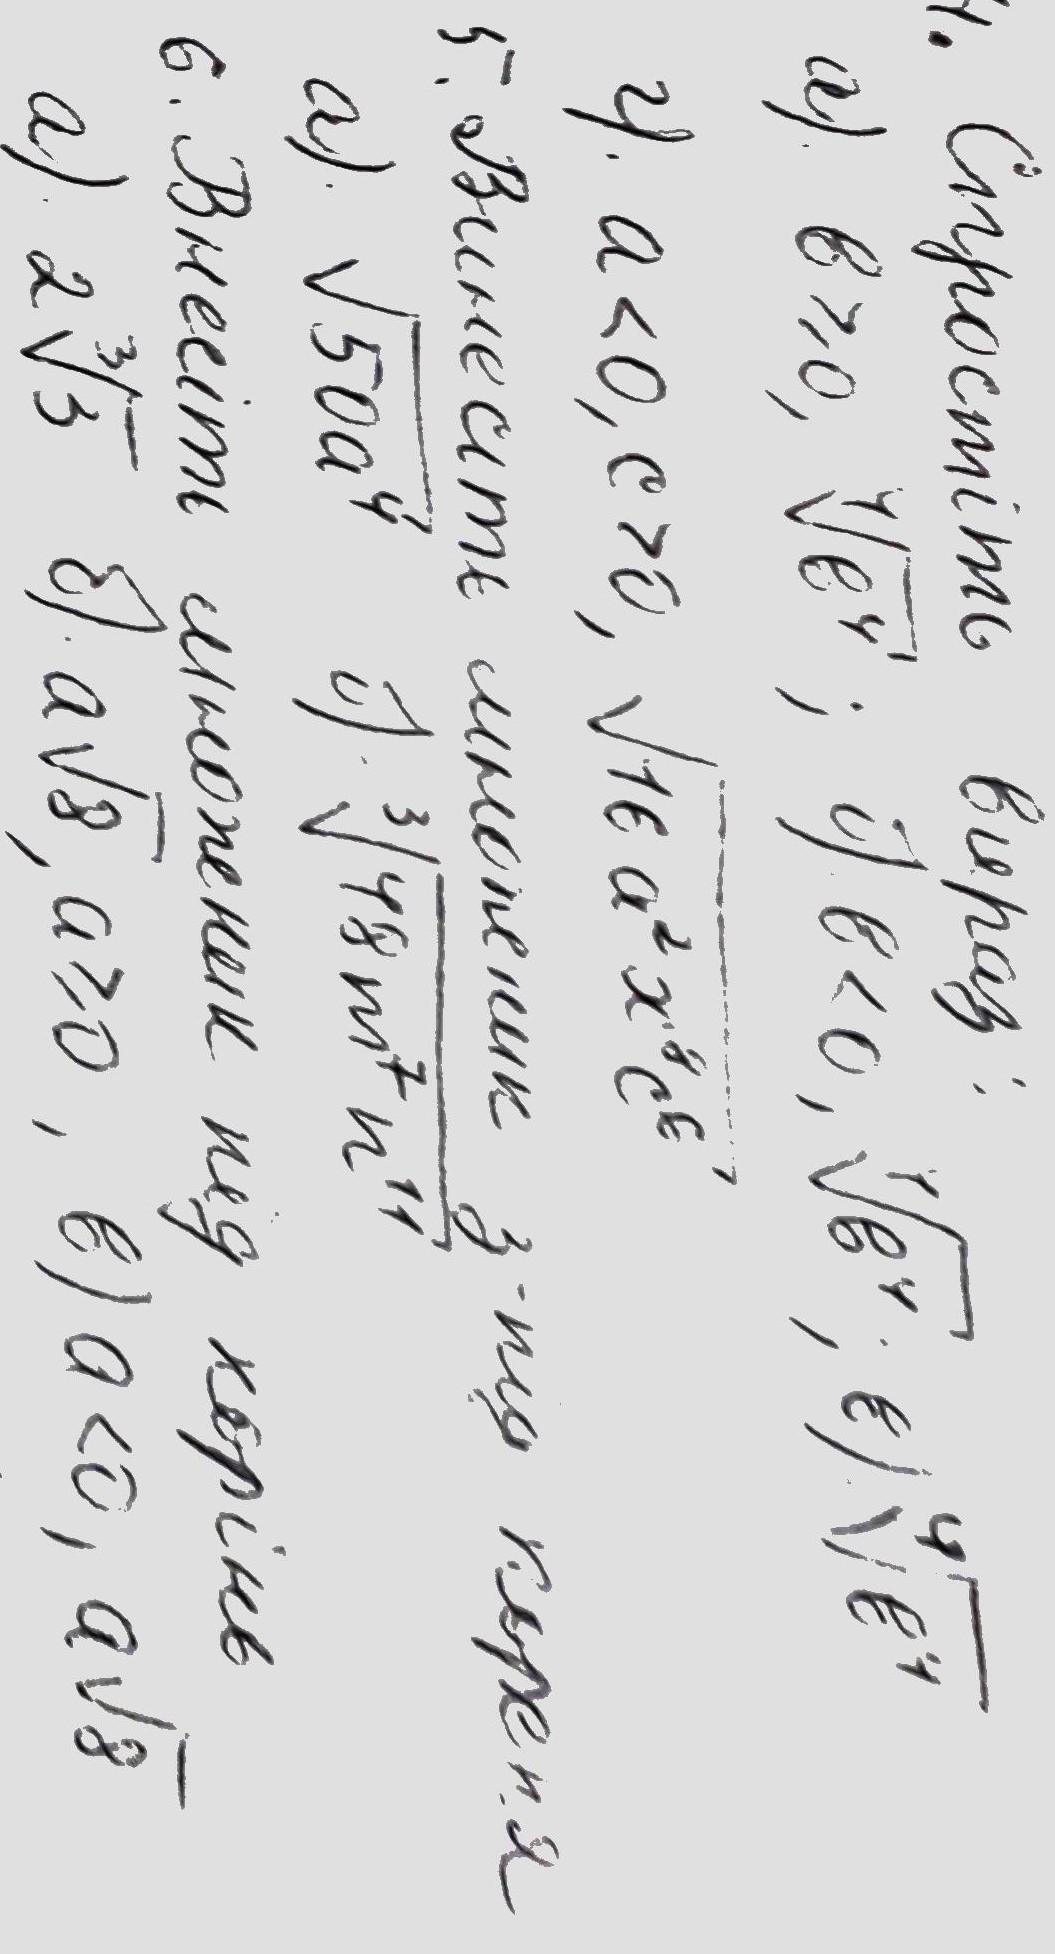 4. Спростіть вираз:
а). в ≥ 0, ⁴√в⁴ ; б) в < 0, ⁴√в⁴ ; в) ⁴√в⁴
г). а < 0, с ≥ 0, √16а²х⁸с⁶
5. Винесить множник з-під кореня
а). √50а⁴ б). ³√48m⁷n¹¹
6. Внесіть множник під корінь
а). 2³√3 б). а√8, а ≥ 0, в) а < 0, а√8